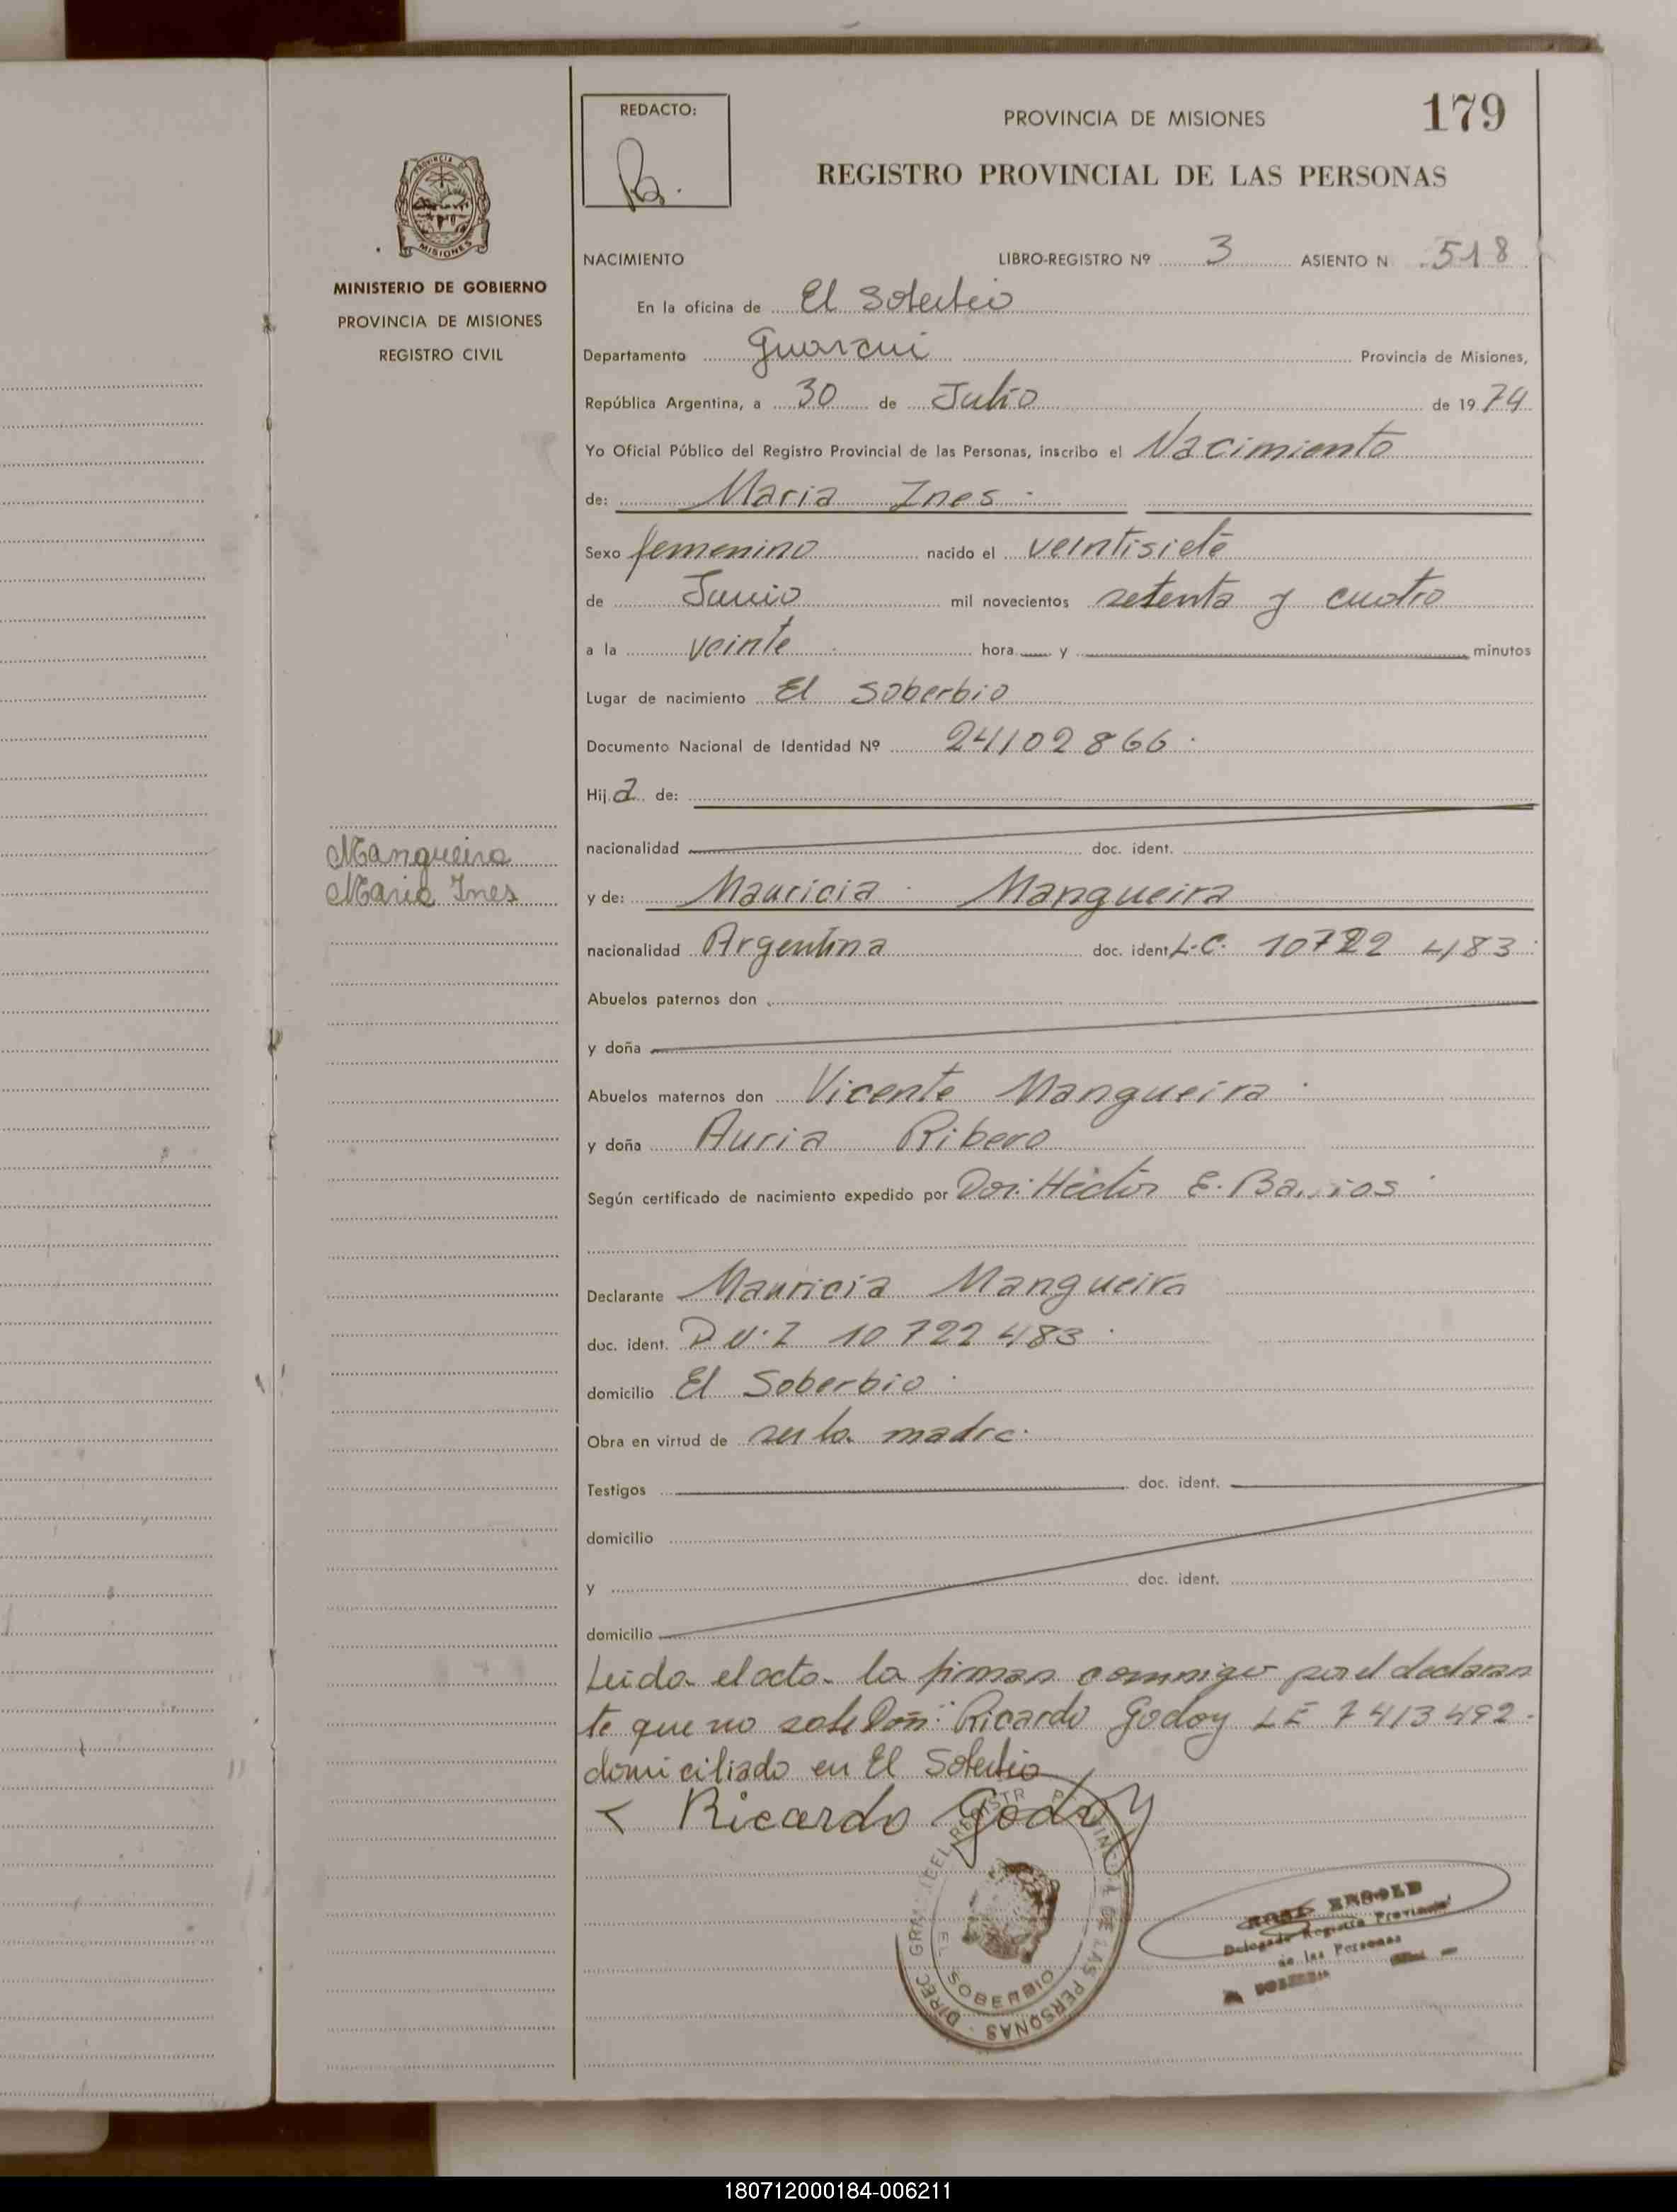 179
REDACTO:
PROVINCIA DE MISIONES
REGISTRO PROVINCIAL DE LAS PERSONAS
MISIONES
MINISTERIO DE GOBIERNO
PROVINCIA DE MISIONES
REGISTRO CIVIL
NACIMIENTO LIBRO-REGISTRO Nº 3 ASIENTO N 518
En la oficina de El Soberbio
Departamento Guarani Provincia de Misiones,
República Argentina, a 30 de Julio de 1974
Yo Oficial Público del Registro Provincial de las Personas, inscribo el Nacimiento
de: Maria Ines
Sexo femenino nacido el veintisiete
de Junio mil novecientos setenta y cuatro
a la veinte hora y minutos
Lugar de nacimiento El Soberbio
Documento Nacional de Identidad Nº 24102866
Hija de:
nacionalidad doc. ident.
Mangueira
Maria Ines
y de: Mauricia Mangueira
nacionalidad Argentina doc. ident L.C. 10722 483
Abuelos paternos don
y doña
Abuelos maternos don Vicente Mangueira
y doña Auria Ribero
Según certificado de nacimiento expedido por Hector E. Barrios
Declarante Mauricia Mangueira
doc. ident. D.N.I 10 722 483
domicilio El Soberbio
Obra en virtud de ser la madre
Testigos doc. ident.
domicilio
y doc. ident.
domicilio
Leida el acta la firman conmigo por el declaran
te que no sabe Don: Ricardo Godoy LE 7413492
domiciliado en El Soberbio
Ricardo Godoy
EL SOBERBIO
DE LAS PERSONAS
Delegado Registro Provincial
de las Personas
180712000184-006211